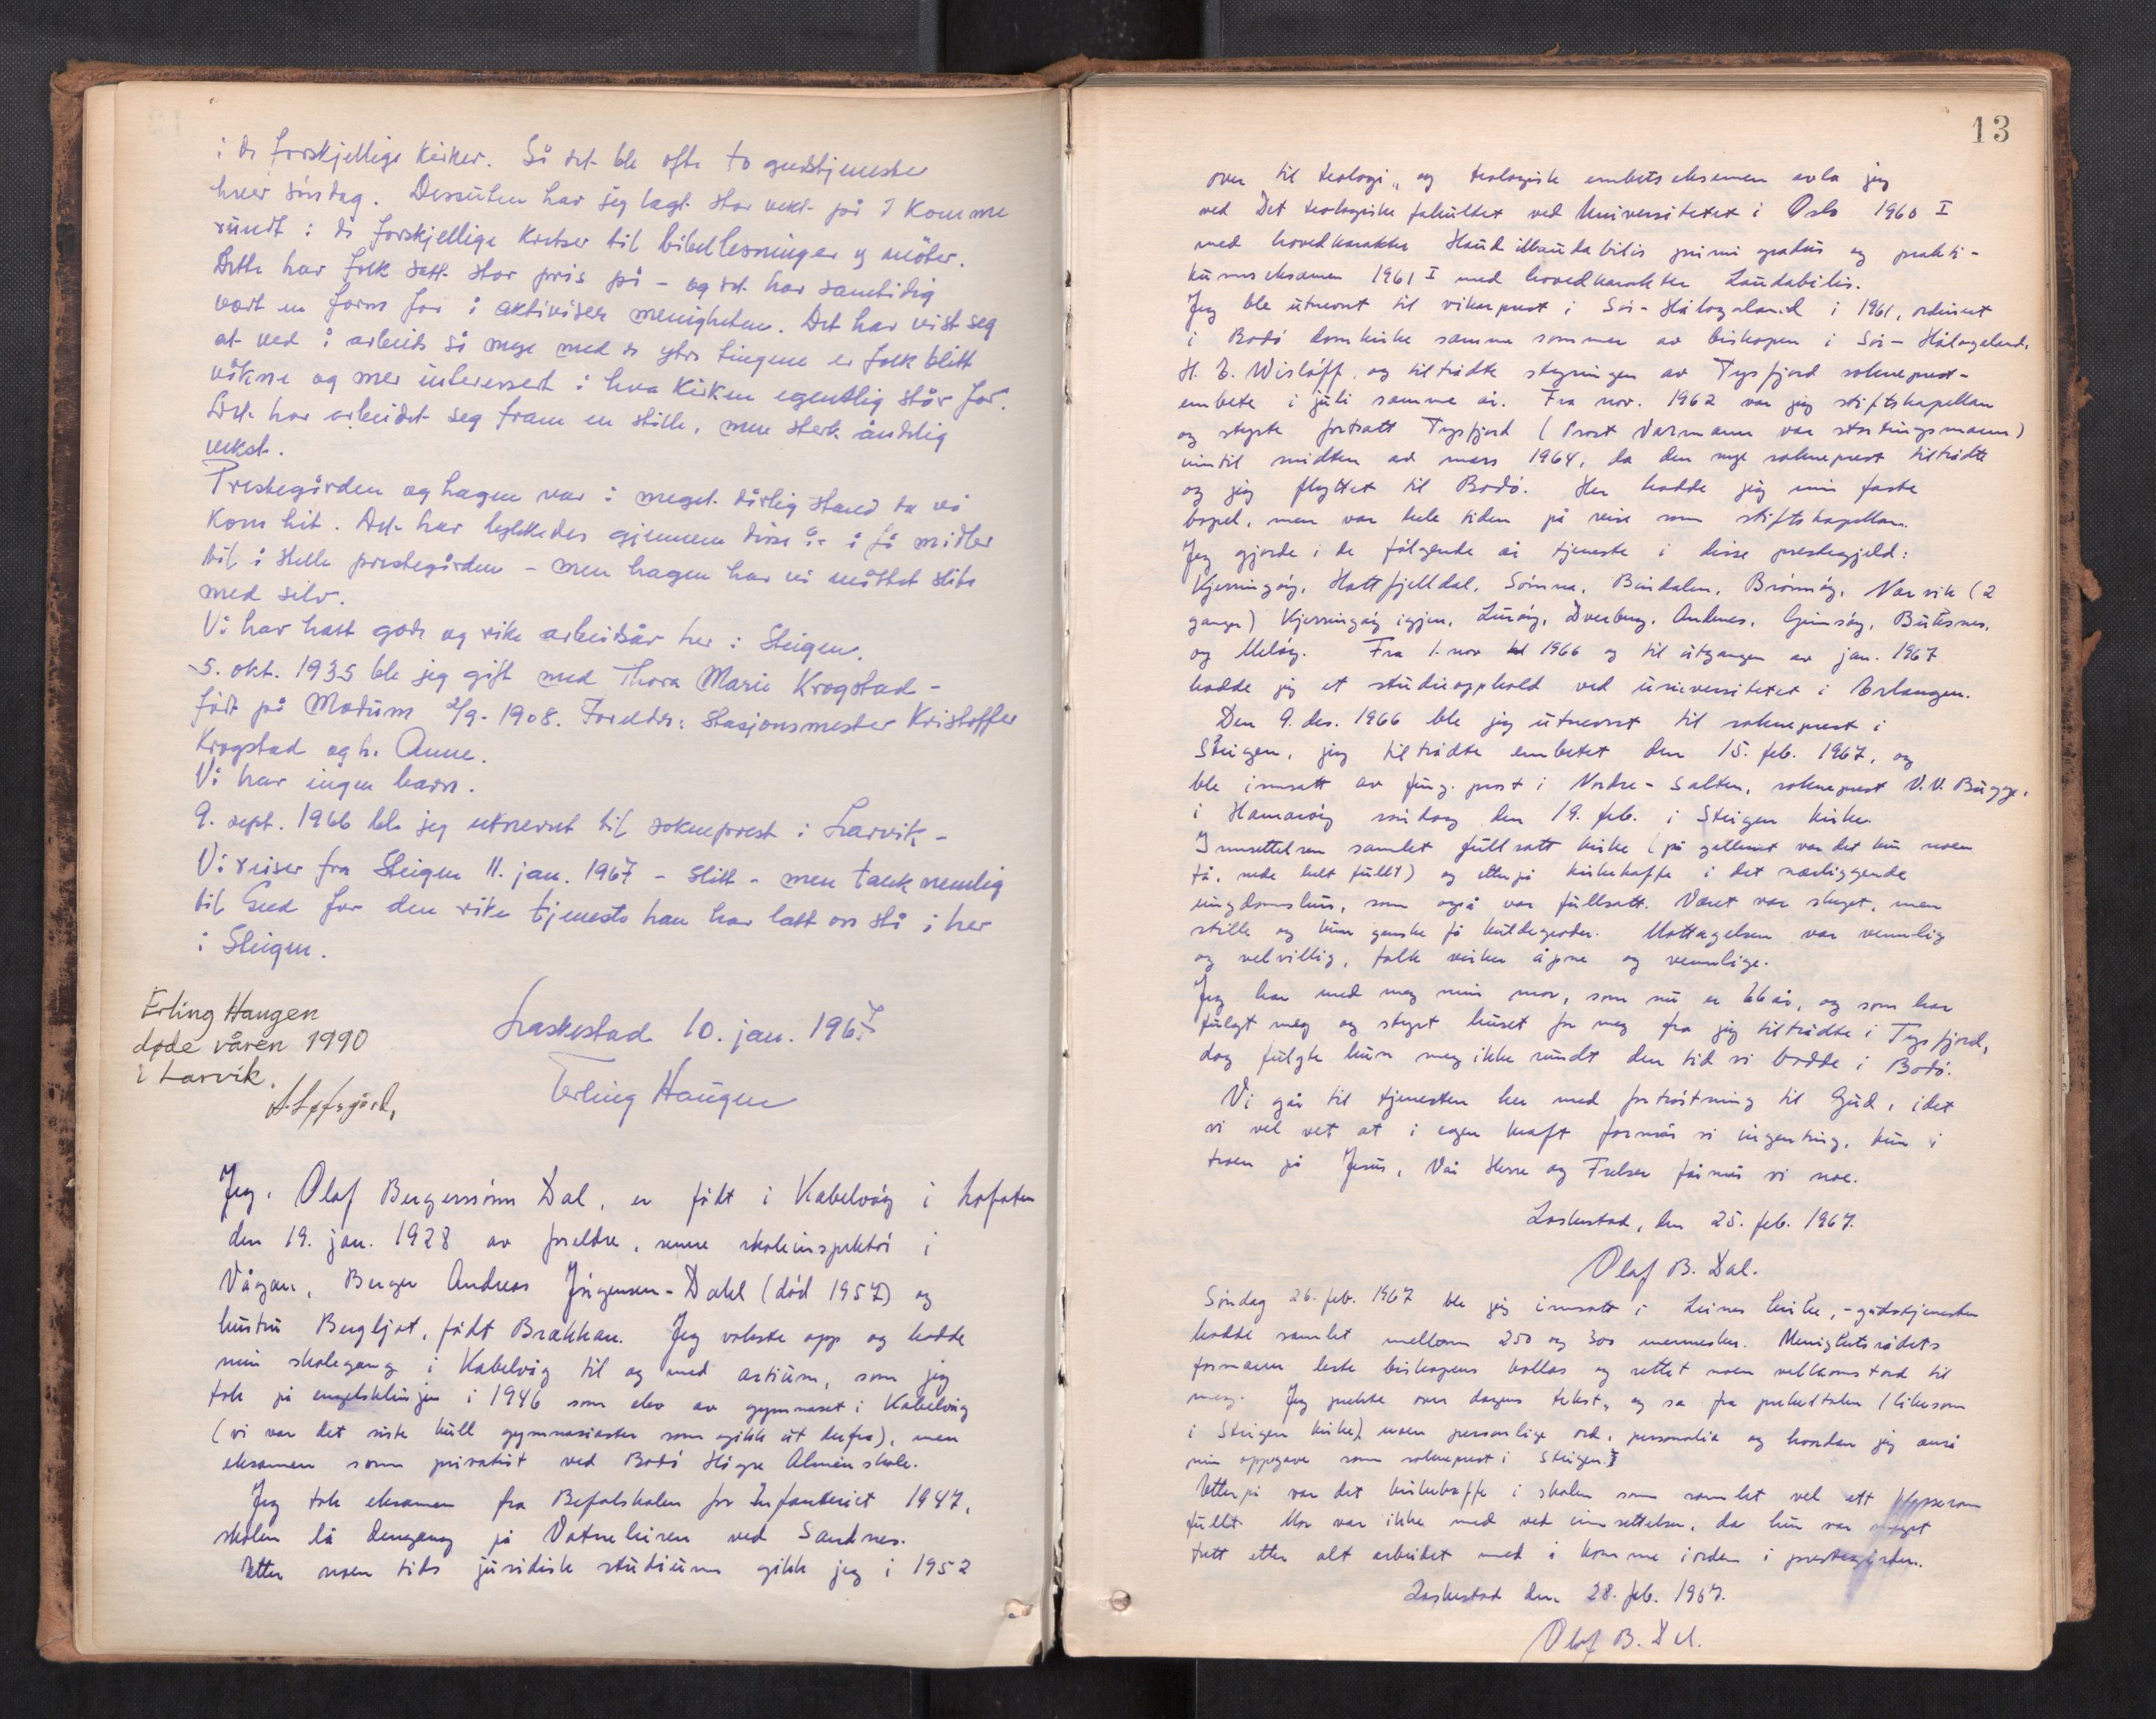 i de forskjellige kirker. Så det ble ofte to gudstjenester
hver søndag. Dessuten har jeg lagt stor vekt på å komme
rundt i de forskjellige kretser til bibellesninger og møter.
Dette har folk satt stor pris på - og det har samtidig
vært en form for å aktivisere menigheten. Det har vist seg
at ved å arbeide så mye med de ytre tingene er folk blitt
våkne og mer interessert i hva kirken egentlig står for.
Det har arbeidet seg fram en stille, men sterk åndelig
vekst.
Prestegården og hagen var i meget dårlig stand da vi
kom hit. Det har lykkedes gjennem disse år å få midler
til å stelle prestegården - men hagen har vi måttet slite
med selv.
Vi har hatt gode og rike arbeidsår her i Steigen.
5. okt. 1935 ble jeg gift med Thora Marie Krogstad -
født på Modum 2/9-1908. Foreldre: Stasjonsmester Kristoffer
Krogstad og h. Anne.
Vi har ingen barn.
9. sept. 1966 ble jeg utnevnt til sokneprest i Larvik -
Vi reiser fra Steigen 11. jan. 1967 - slitt - men takknemlig
til Gud for den rike tjeneste han har latt oss stå i her
i Steigen.
Laskestad 10. jan. 1967
Erling Haugen
Erling Haugen
døde våren 1990
i Larvik.
Jeg, Olaf Bergerssønn Dal, er født i Kabelvåg i Lofoten
den 19. jan. 1928 av foreldre, senere skoleinspektør i
Vågan, Berger Andreas Jørgensen-Dahl (død 1957) og
hustru Bergljot, født Brækkan. Jeg vokste opp og hadde
min skolegang i Kabelvåg til og med artium, som jeg
tok på engelsklinjen i 1946 som elev av gymnaset i Kabelvåg
(vi var det siste kull gymnasiaster som gikk ut derfra), men
eksamen som privatist ved Bodø Høgre Almenskole.
Jeg tok eksamen fra Befalskolen for Infanteriet 1947,
skolen lå dengang på Vatneleiren ved Sandnes.
Etter noen tids juridisk studium gikk jeg i 1952
13
over til teologi, og teologisk embetseksamen avla jeg
ved Det teologiske fakultet ved Universitetet i Oslo 1960 I
med hovedkarakter Haud illaudabilis primi gradus og prakti-
kumseksamen 1961 I med hovedkarakter Laudabilis.
Jeg ble utnevnt til vikarprest i Sør-Hålogaland i 1961, ordinert
i Bodø domkirke samme sommer av biskopen i Sør-Hålogaland,
H. E. Wisløff, og tiltrådte styringen av Tysfjord sokneprest-
embete i juli samme år. Fra nov. 1962 var jeg stiftskapellan
og styrte fortsatt Tysfjord (Prost Varmann var stortingsmann)
inntil midten av mars 1964, da den nye sokneprest tiltrådte
og jeg flyttet til Bodø. Her hadde jeg min faste
bopel, men var hele tiden på reise som stiftskapellan.
Jeg gjorde i de følgende år tjeneste i disse prestegjeld:
Kjerringøy, Hattfjelldal, Sømna, Bindalen, Brønnøy, Narvik (2
ganger) Kjerringøy igjen, Lurøy, Dverberg, Andenes, Gimsøy, Buksnes,
og Meløy. Fra 1. nov 1966 og til utgangen av jan. 1967
hadde jeg et studieopphold ved universitetet i Erlangen.
Den 9. des. 1966 ble jeg utnevnt til sokneprest i
Steigen, jeg tiltrådte embetet den 15. feb. 1967, og
ble innsatt av fung. prost i Nordre-Salten, sokneprest V.V. Bugge,
i Hamarøy søndag den 19. feb. i Steigen kirke.
Innsettelsen samlet fullsatt kirke (på galleriet var det kun noen
få, nede helt fullt) og etterpå kirkekaffe i det nærliggende
ungdomshus, som også var fullsatt. Været var skyet, men
stille og kun ganske få kuldegrader. Mottagelsen var vennlig
og velvillig, folk virker åpne og vennlige.
Jeg har med meg min mor, som nu er 66 år, og som har
fulgt meg og styrt huset for meg fra jeg tiltrådte i Tysfjord,
dog fulgte hun meg ikke rundt den tid vi bodde i Bodø.
Vi går til tjenesten her med fortrøstning til Gud, idet
vi vel vet at i egen kraft formår vi ingenting, kun i
troen på Jesus, Vår Herre og Frelser formår vi noe.
Laskestad, den 25. feb. 1967.
Olaf B. Dal.
Søndag 26. feb. 1967 ble jeg innsatt i Leines kirke, - gudstjenesten
hadde samlet mellom 250 og 300 mennesker. Menighetsrådets
formann leste biskopens kallas og rettet noen velkomstord til
meg. Jeg prekte over dagens tekst, og sa fra prekestolen (likesom
i Steigen kirke) noen personlige ord, personalia og hvordan jeg anså
min oppgave som sokneprest i Steigen.
Etterpå var det kirkekaffe i skolen som samlet vel ett klasserom
fullt. Mor var ikke med ved innsettelsen, da hun var meget
trett etter alt arbeidet med å komme i orden i prestegården.
Laskestad den 28. feb. 1967.
Olaf B. Dal.